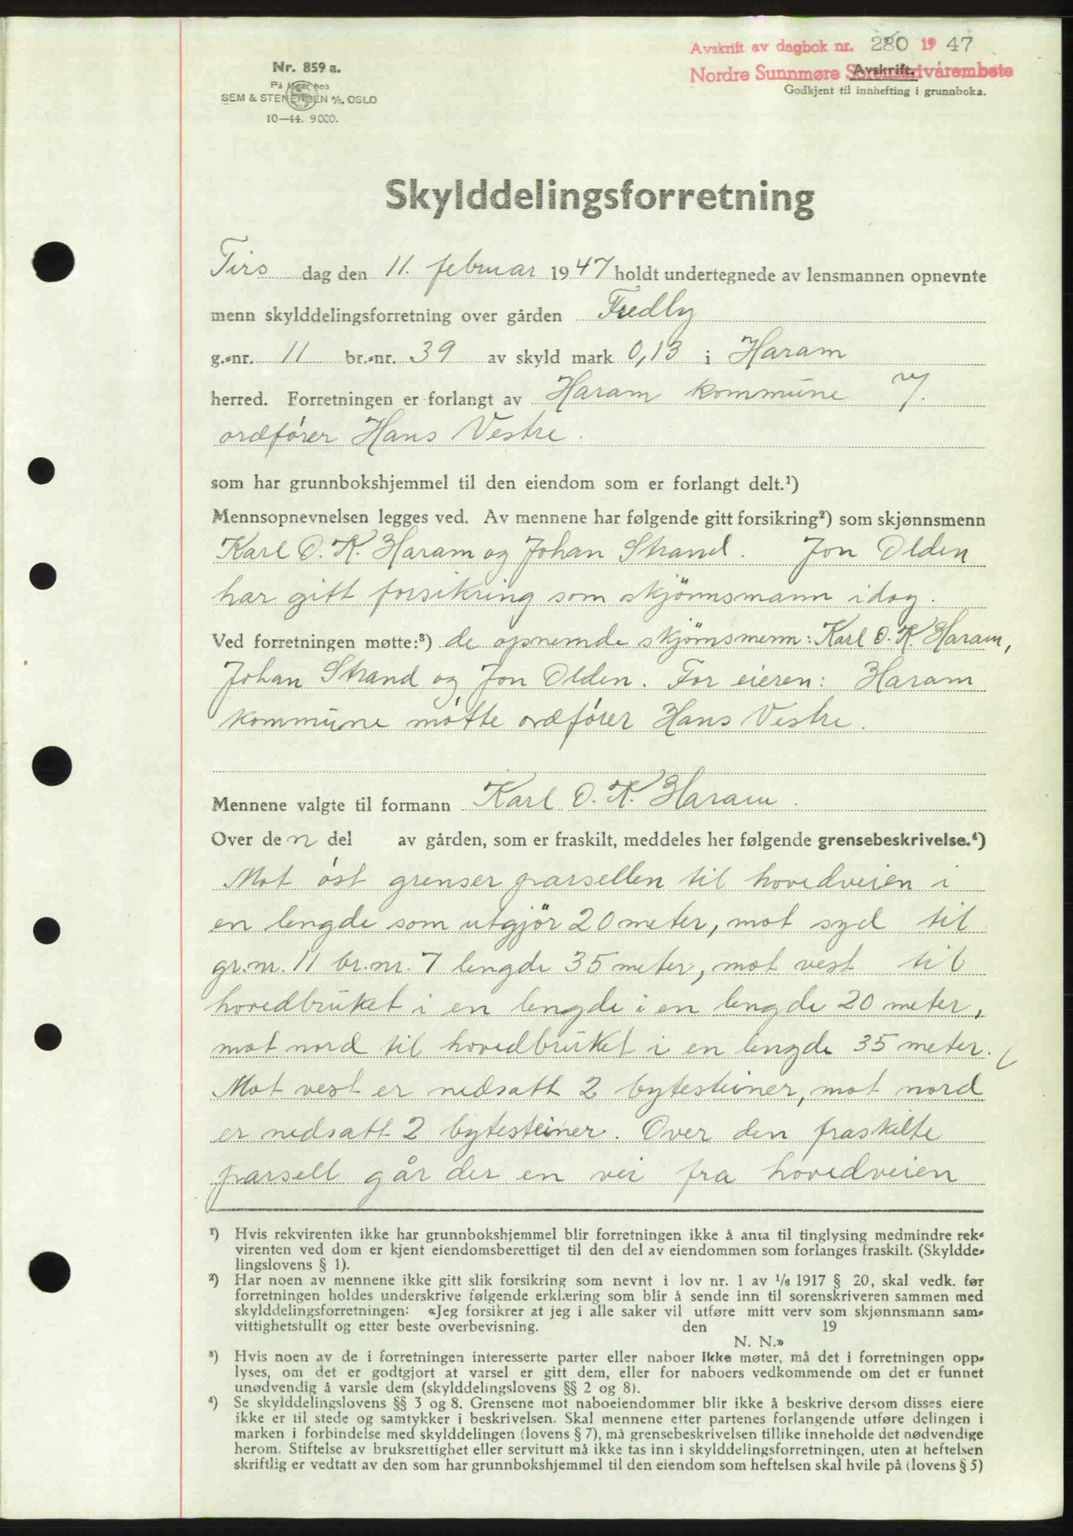 Avskrift av dagbok nr. 280 1947
Nordre Sunnmøre Sorenskrivarembete
Avskrift.
Godkjent til innhefting i grunnboka.
Nr. 859 a.
På lager hos
SEM & STENERSEN A/S, OSLO
10—44. 9000.
Skylddelingsforretning
Tirs dag den 11. februar 1947 holdt undertegnede av lensmannen opnevnte
menn skylddelingsforretning over gården Fredly
g.-nr. 11 br.-nr. 39 av skyld mark 0,13 i Haram
herred. Forretningen er forlangt av Haram kommune v/.
ordfører Hans Vestre.
som har grunnbokshjemmel til den eiendom som er forlangt delt.¹)
Mennsopnevnelsen legges ved. Av mennene har følgende gitt forsikring²) som skjønnsmenn
Karl O. K. Haram og Johan Strand. Jon Olden
har gitt forsikring som skjönnsmann idag.
Ved forretningen møtte:³) de opnemde skjömsmenn: Karl O. K. Haram,
Johan Strand og Jon Olden. For eieren: Haram
kommune møtte ordfører Hans Vestre.
Mennene valgte til formann Karl O. K. Haram.
Over den del av gården, som er fraskilt, meddeles her følgende grensebeskrivelse.⁴)
Mot øst grenser parsellen til hovedveien i
en lengde som utgjör 20 meter, mot syd til
gr.nr. 11 br.nr. 7 lengde 35 meter, mot vest til
hovedbruket i en lengde i en lengde 20 meter,
mot nord til hovedbruket i en lengde 35 meter.
Mot vest er nedsatt 2 bytesteiner, mot nord
er nedsatt 2 bytesteiner. Over den fraskilte
parsell går der en vei fra hovedveien
¹) Hvis rekvirenten ikke har grunnbokshjemmel blir forretningen ikke å anta til tinglysing medmindre rek-
virenten ved dom er kjent eiendomsberettiget til den del av eiendommen som forlanges fraskilt. (Skyldde-
lingslovens § 1).
²) Har noen av mennene ikke gitt slik forsikring som nevnt i lov nr. 1 av 1/6 1917 § 20, skal vedk. før
forretningen holdes underskrive følgende erklæring som blir å sende inn til sorenskriveren sammen med
skylddelingsforretningen: «Jeg forsikrer at jeg i alle saker vil utføre mitt verv som skjønnsmann sam-
vittighetsfullt og etter beste overbevisning. den 19
N. N.»
³) Hvis noen av de i forretningen interesserte parter eller naboer ikke møter, må det i forretningen opp-
lyses, om det er godtgjort at varsel er gitt dem, eller for naboers vedkommende om det er funnet
unødvendig å varsle dem (skylddelingslovens §§ 2 og 8).
⁴) Se skylddelingslovens §§ 3 og 8. Grensene mot naboeiendommer blir ikke å beskrive dersom disses eiere
ikke er til stede og samtykker i beskrivelsen. Skal mennene etter partenes forlangende utføre delingen i
marken i forbindelse med skylddelingen (lovens § 7), må grensebeskrivelsen tillike inneholde det nødvendige
herom. Stiftelse av bruksrettighet eller servitutt må ikke tas inn i skylddelingsforretningen, uten at heftelsen
skriftlig er vedtatt av den som har grunnbokshjemmel til den eiendom som heftelsen skal hvile på (lovens § 5)